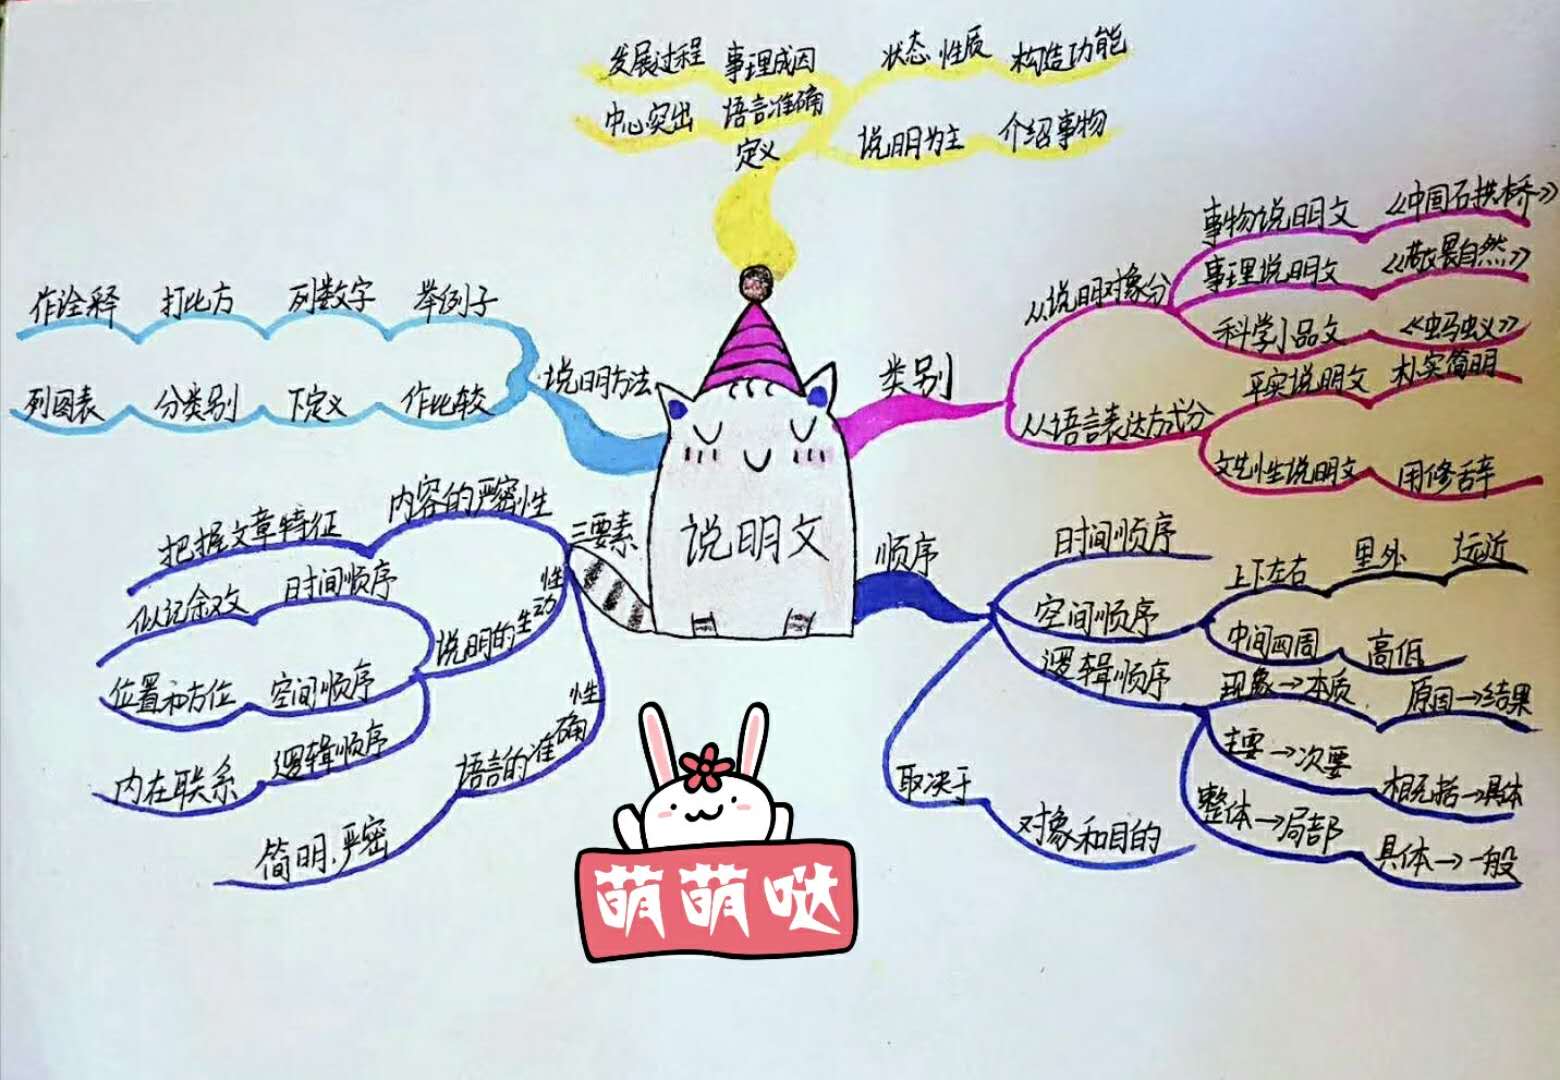 发展过程 事理成因 状态 性质 构造功能
中心突出 语言准确 说明为主 介绍事物
定义
说明文
说明方法
作诠释 打比方 列数字 举例子
列图表 分类别 下定义 作比较
类别
从说明对象分
事物说明文 《中国石拱桥》
事理说明文 《敬畏自然》
科学小品文 《蚂蚁》
从语言表达方式分
平实说明文 朴实简明
文艺性说明文 用修辞
三要素
内容的严密性
把握文章特征
说明的生动性
时间顺序 似记叙文
空间顺序 位置和方位
逻辑顺序 内在联系
语言的准确性
简明.严密
顺序
时间顺序
空间顺序
上下左右 里外 远近
中间四周 高低
逻辑顺序
现象→本质 原因→结果
主要→次要 概括→具体
整体→局部 具体→一般
取决于
对象和目的
萌萌哒